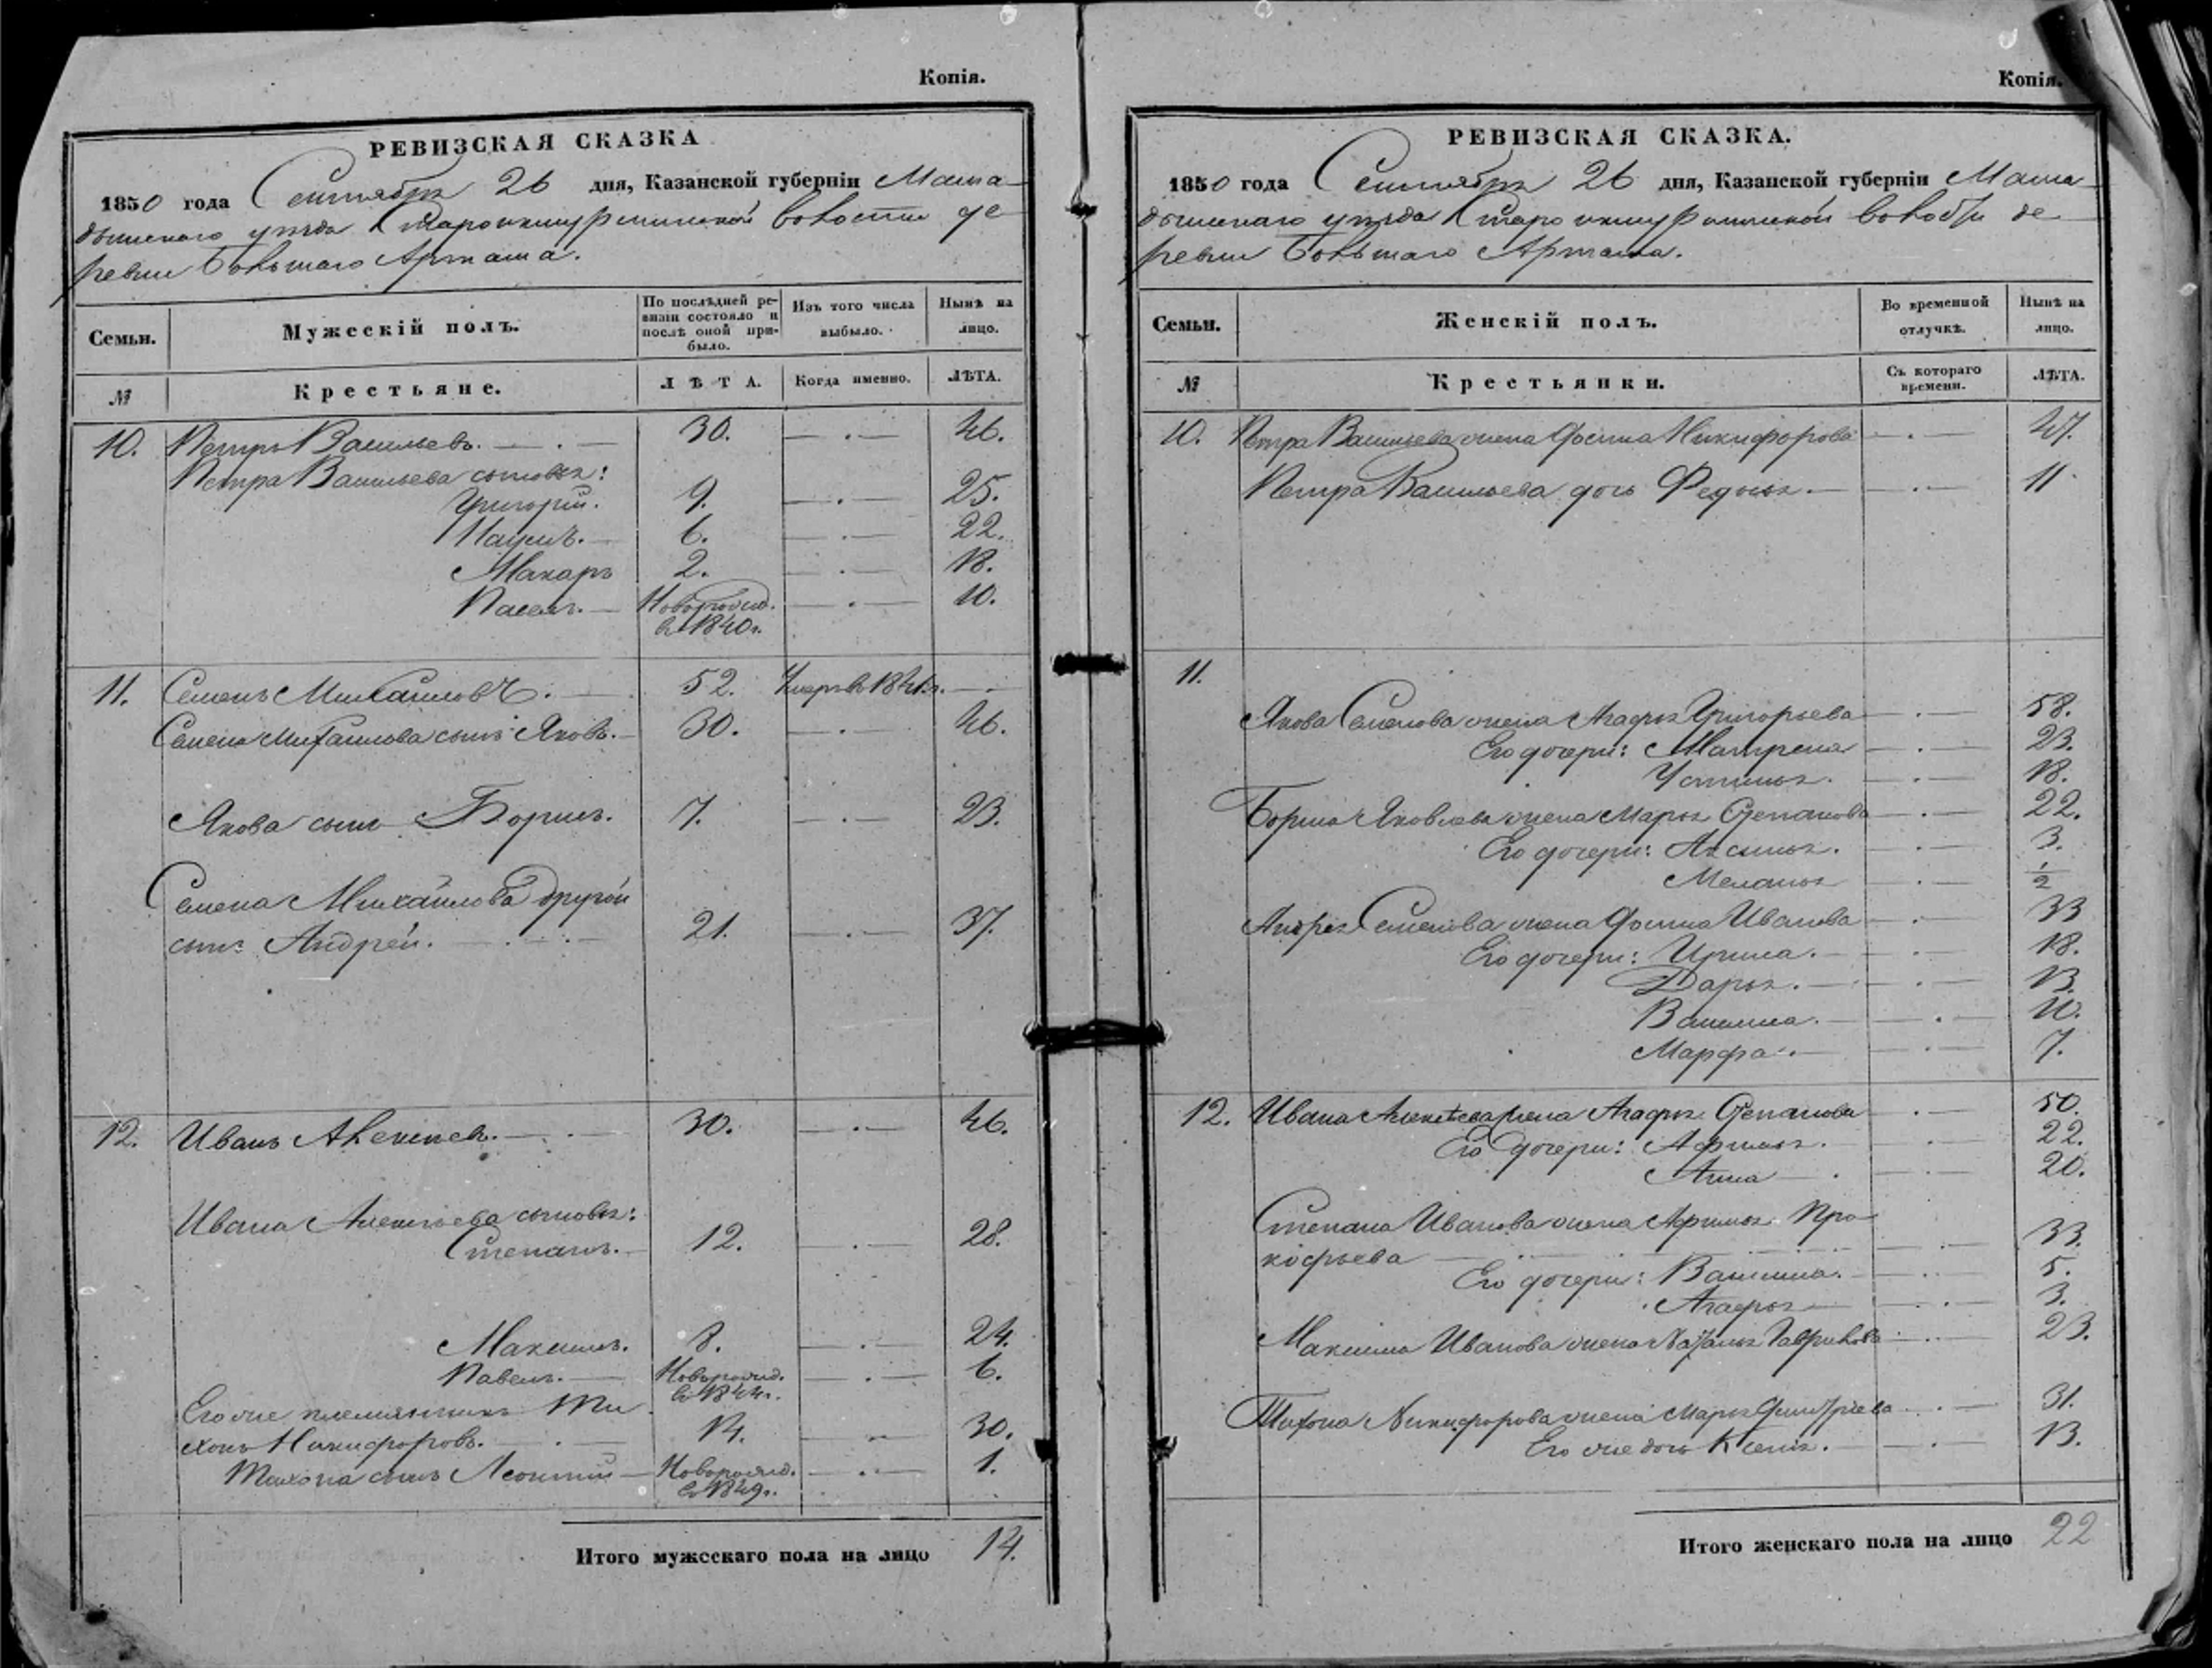 Копія.
РЕВИЗСКАЯ СКАЗКА
1850 года Сентября 26 дня, Казанской губерніи Мама-
дышскаго уѣзда Староикшурминской волости де-
ревни Большаго Арташа.
Семьи. Мужескій полъ. По послѣдней ре- Изъ того числа Нынѣ на
визіи состояло и выбыло. лицо.
послѣ оной при-
было.
№ Крестьяне. ЛѢТА. Когда именно. ЛѢТА.
10. Петръ Васильевъ. 30. 46.
Петра Васильева сыновья:
Григорій. 9. 25.
Наумъ. 6. 22.
Макаръ 2. 18.
Новорожд. 10.
въ 1840г.
11. Семенъ Михайловъ. 52. Умеръ въ
Семена Михайлова сынъ Яковъ. 30. 46.
Якова сынъ Борисъ. 7. 23.
Семена Михайлова другой
сынъ Андрей. 21. 37.
12. Иванъ Алексѣевъ. 30. 46.
Ивана Алексѣева сыновья:
Степанъ. 12. 28.
Максимъ. 8. 24.
Павелъ. Новорожд. 6.
въ 1844г.
Его же племянникъ Ти
хонъ Никифоровъ. 14. 30.
Тихона сынъ Леонтій Новорожд. 1.
въ 1849г.
Итого мужескаго пола на лицо 14.
Копія.
РЕВИЗСКАЯ СКАЗКА.
1850 года Сентября 26 дня, Казанской губерніи Мама-
дышскаго уѣзда Староикшурминской волости де-
ревни Большаго Арташа.
Семьи. Женскій полъ. Во временной Нынѣ на
отлучкѣ. лицо.
№ Крестьянки. Съ котораго ЛѢТА.
времени.
10. Петра Васильева жена Фосина Никифорова 47.
Петра Васильева дочь Федосья 11
11.
Якова Семенова жена Агафья Григорьева 58.
Его дочери: Матрена 23.
Устинья. 18.
Бориса Яковлева жена Марья Степанова 22.
Его дочери: Аксинья. 3.
Меланья 1/2
Андрея Семенова жена Фосина Иванова 33
Его дочери: Ирина. 18.
Дарья. 13.
Васииса. 10.
Марфа. 7.
12. Ивана Алексѣева жена Агафья Степанова 50.
Его дочери: Афимья. 22.
Анна 20.
Степана Иванова жена Афимья Про
кофьева 33.
Его дочери: Васииса. 5.
Агафья 3.
Максима Иванова жена Наталья Гаврилова 23.
Тихона Никифорова жена Марья Дмитріева 31.
Его же дочь Ксенія. 13.
Итого женскаго пола на лицо 22